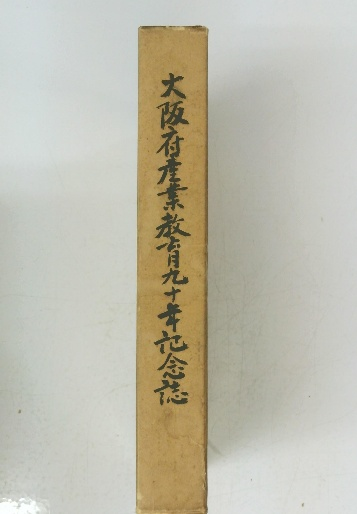 大阪府産業教育九十年記念誌